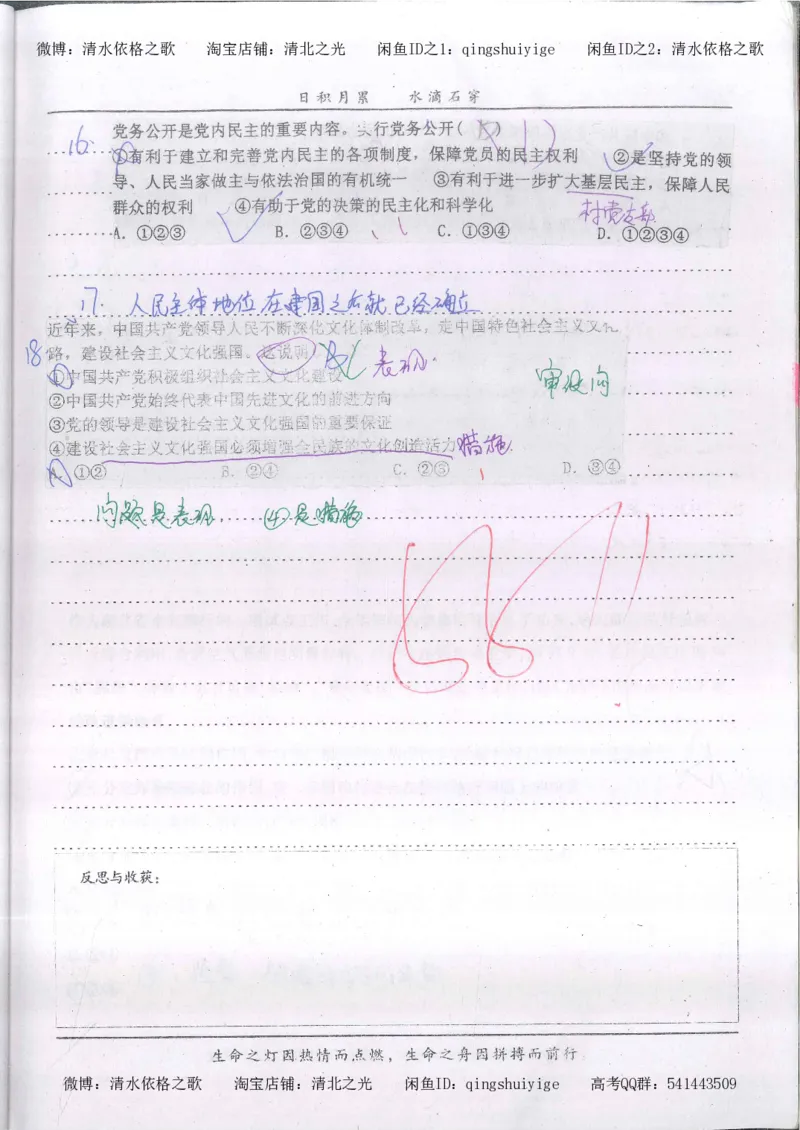 微博：清水依格之歌 淘宝店铺：清北之光 闲鱼ID之1：qingshuiyige 闲鱼ID之2：清水依格之歌
日积月累 水滴石穿
16. 党务公开是党内民主的重要内容。实行党务公开( )
①有利于建立和完善党内民主的各项制度，保障党员的民主权利 ②是坚持党的领
导、人民当家做主与依法治国的有机统一 ③有利于进一步扩大基层民主，保障人民
群众的权利 ④有助于党的决策的民主化和科学化
村党支部
A. ①②③ B. ②③④ C. ①③④ D. ①②③④
17. 人民主体地位在建国之前就已经确立
近年来，中国共产党领导人民不断深化文化体制改革，走中国特色社会主义文化
18 路，建设社会主义文化强国。这说明
表现.
①中国共产党积极组织社会主义文化建设
审设问
②中国共产党始终代表中国先进文化的前进方向
③党的领导是建设社会主义文化强国的重要保证
④建设社会主义文化强国必须增强全民族的文化创造活力 措施.
A. ①② B. ②④ C. ②③ D. ③④
问题是表现, ④是措施
反思与收获：
生命之灯因热情而点燃，生命之舟因拼搏而前行
微博：清水依格之歌 淘宝店铺：清北之光 闲鱼ID：qingshuiyige 高考QQ群：541443509